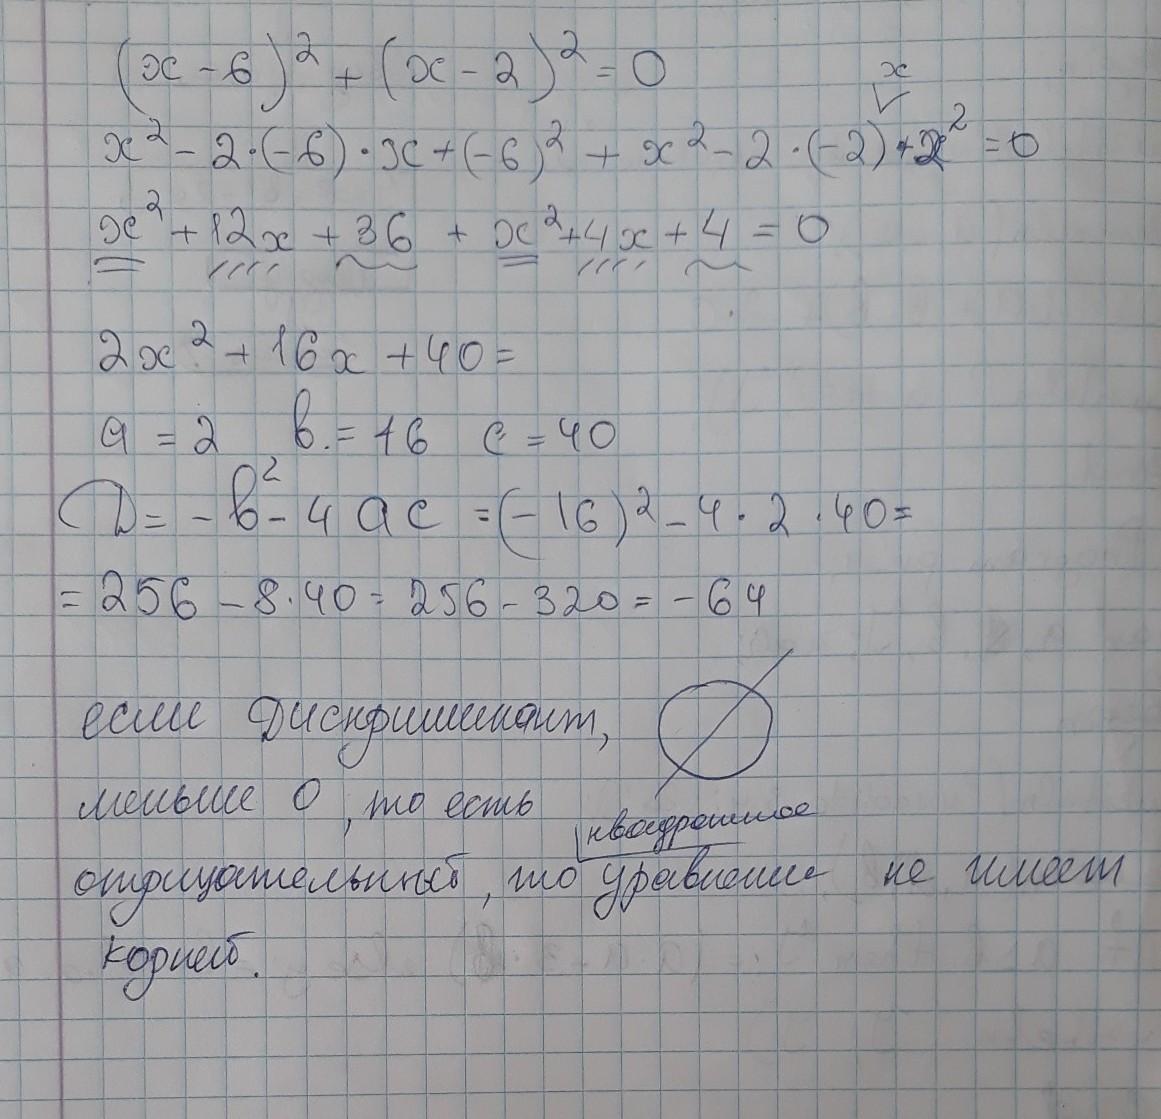 (x - 6)² + (x - 2)² = 0
x
x² - 2·(-6)·x + (-6)² + x² - 2·(-2) + 2² = 0
x² + 12x + 36 + x² + 4x + 4 = 0
2x² + 16x + 40 =
a = 2 b. = +6 c = 40
D = - b² - 4ac = (-16)² - 4·2·40 =
= 256 - 8·40 = 256 - 320 = -64
если Дискриминант, ∅
меньше 0, то есть
квадратное
отрицательный, то уравнение не имеет
корней.